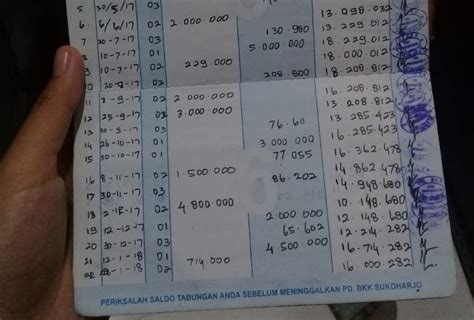 5 30/5/17 03
6. 6/6/17 02 2.000.000 13.098.032
7 30-7-17 03 130.980 13.229.012
8 10-7-17 01 5.000.000 18.229.012
9 10-7-17 02 229.000 18.000.012
10 17 03 208.800 18.208.812
11 7-9-17 02 2.000.000 16.208.812
12 25-9-17 02 3.000.000 13.208.812
13 30-9-17 03 76.611 13.285.423
14 26-10-17 01 3.000.000 16.285.423
15 30-10-17 01 77.055 16.362.478
16 8-11-17 02 1.500.000 14.862.478
17 30-11-17 03 86.202 14.948.680
18 2-12-17 02 4.800.000 10.148.680
19 12-12-17 01 2.000.000 12.148.680
20 30-12-17 03 65.602 12.214.282
21 12-1-18 01 4.500.000 16.714.282
-1-18 02 714.000 16.000.282
PERIKSALAH SALDO TABUNGAN ANDA SEBELUM MENINGGALKAN PD. BKK SUKOHARJO